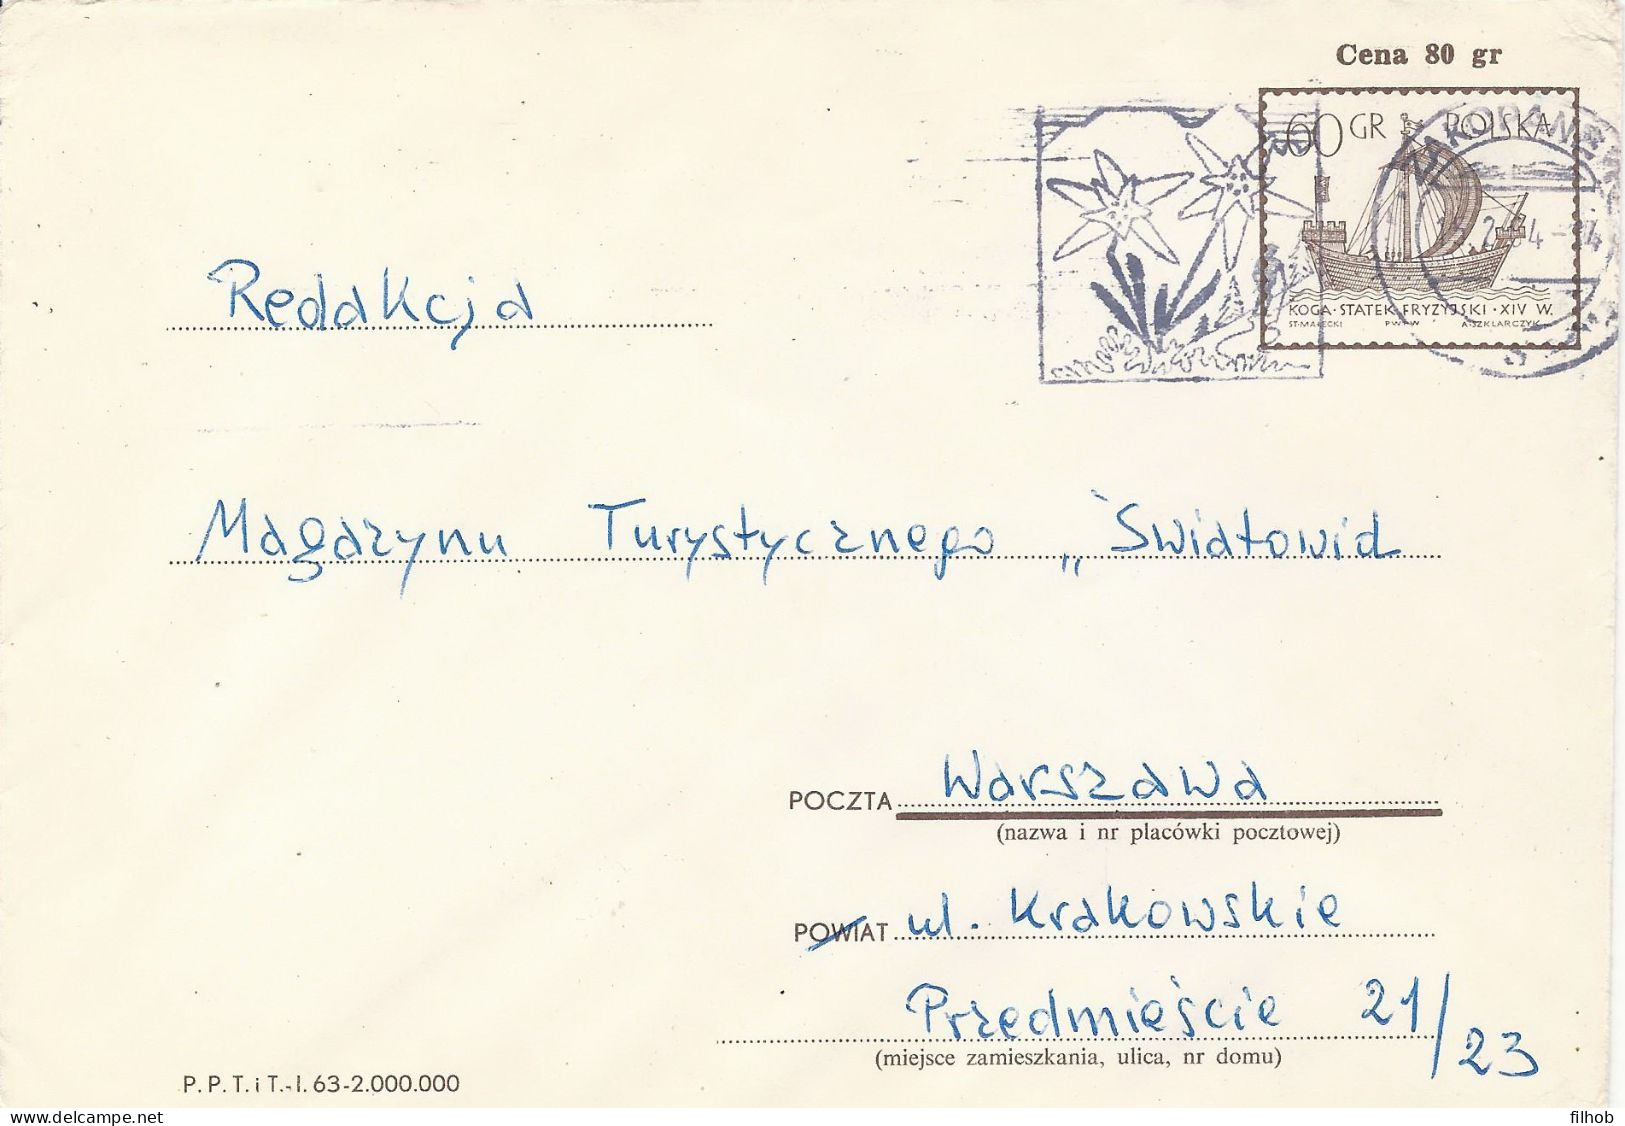 Cena 80 gr
60 GR POLSKA
ZAKOPANE
KOGA · STATEK FRYZYJSKI · XIV W.
ST. MAŁECKI P W P W A. SZKLARCZYK
Redakcja
Magazynu Turystycznego „Światowid
POCZTA Warszawa
(nazwa i nr placówki pocztowej)
POWIAT ul. Krakowskie
Przedmieście 21/23
(miejsce zamieszkania, ulica, nr domu)
P. P. T. i T.-I. 63-2.000.000
filhob